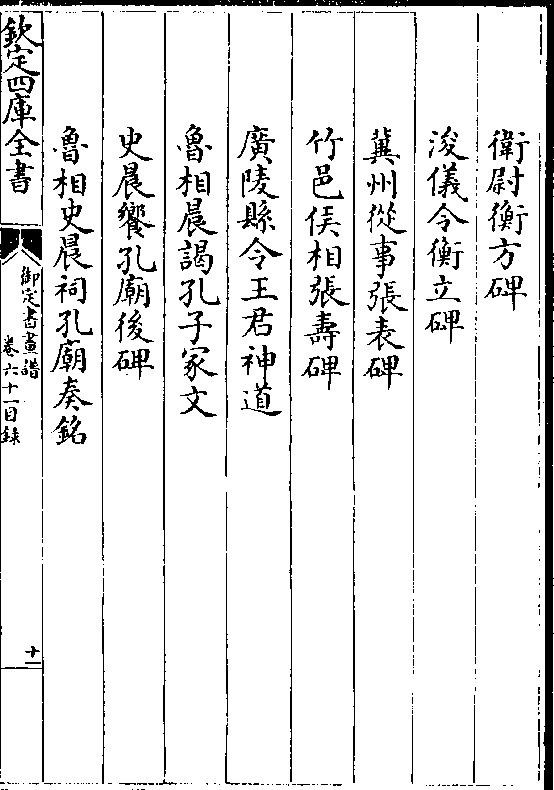 衛尉衡方碑
浚儀令衡立碑
冀州從事張表碑
竹邑侯相張壽碑
廣陵縣令王君神道
魯相晨謁孔子冢文
史晨饗孔廟後碑
魯相史晨祠孔廟奏銘
欽定四庫全書
御定書畫譜
卷六十一目錄
十